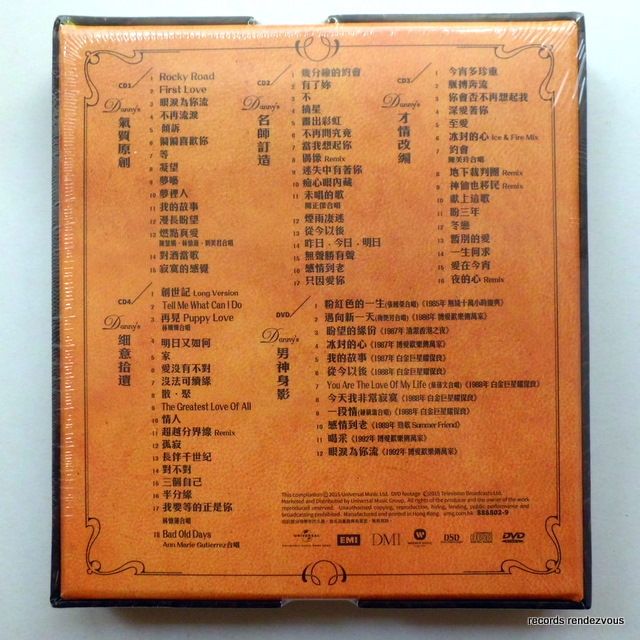 CD1
Danny's
氣質原創
1 Rocky Road
2 First Love
3 眼淚為你流
4 不再流淚
5 傾訴
6 偏偏喜歡你
7 等
8 凝望
9 夢囈
10 夢裡人
11 我的故事
12 漫長盼望
13 燃點真愛
14 對酒當歌
15 寂寞的感覺
CD2
Danny's
名師訂造
1 幾分鐘的約會
2 有了妳
3 不
4 摘星
5 畫出彩虹
6 不再問究竟
7 當我想起你
8 偶像 Remix
9 迷失中有著你
10 癡心眼內藏
11 未唱的歌
關正傑合唱
12 煙雨凄迷
13 從今以後
14 昨日．今日．明日
15 無聲勝有聲
16 感情到老
17 只因愛你
CD3
Danny's
才情改編
1 今宵多珍重
2 飄搏奔流
3 你會否不再想起我
4 深愛著你
5 至愛
6 冰封的心 Ice & Fire Mix
7 約會
陳美玲合唱
8 地下裁判團 Remix
9 神偷也移民 Remix
10 獻上這歌
11 盼三年
12 冬戀
13 暫別的愛
14 一生何求
15 愛在今宵
16 夜的心 Remix
CD4
Danny's
細意拾遺
1 創世記 Long Version
2 Tell Me What Can I Do
3 再見 Puppy Love
林珊珊合唱
4 明日又如何
5 家
6 愛沒有不對
7 沒法可續緣
8 散．聚
9 The Greatest Love Of All
10 情人
11 超越分界線 Remix
12 孤寂
13 長伴千世紀
14 對不對
15 三個自己
16 半分緣
17 我要等的正是你
林憶蓮合唱
18 Bad Old Days
Ann Marie Gutierrez合唱
DVD
Danny's
男神身影
1 粉紅色的一生(張國榮合唱)
2 邁向新一天(梅艷芳合唱)
3 盼望的緣份
4 冰封的心
5 我的故事
6 從今以後
7 You Are The Love Of My Life
8 今天我非常寂寞
9 一段情
10 感情到老 (1989年 勁歌 Summer Friend)
11 喝采
12 眼淚為你流
This compilation ℗ 2015 Universal Music Ltd. DVD footage © 2015 Television Broadcasts Ltd.
Marketed and Distributed by Universal Music Group. All rights of the producer and the owner of the work
reproduced reserved. Unauthorised copying, reproduction, hiring, lending, public performance and
broadcasting prohibited. Manufactured and printed in Hong Kong. umg.com.hk 888802-9
UNIVERSAL
EMI
DMI
WARNER MUSIC
DSD
DVD
records rendezvous